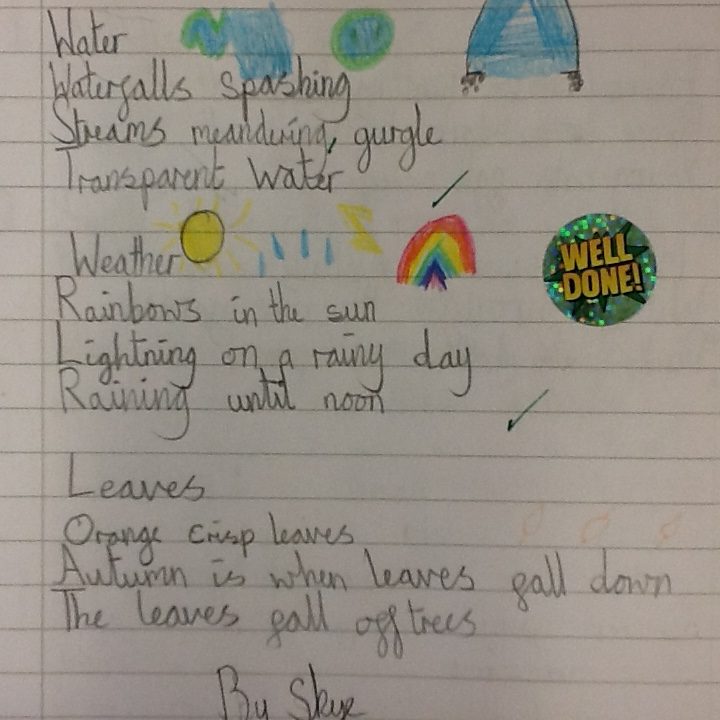 Water
Waterfalls spashing
Streams meandering, gurgle
Transparent Water
Weather
WELL
DONE!
Rainbows in the sun
Lightning on a rainy day
Raining until noon
Leaves
Orange crisp leaves
Autumn is when leaves fall down
The leaves fall off trees
By Skye